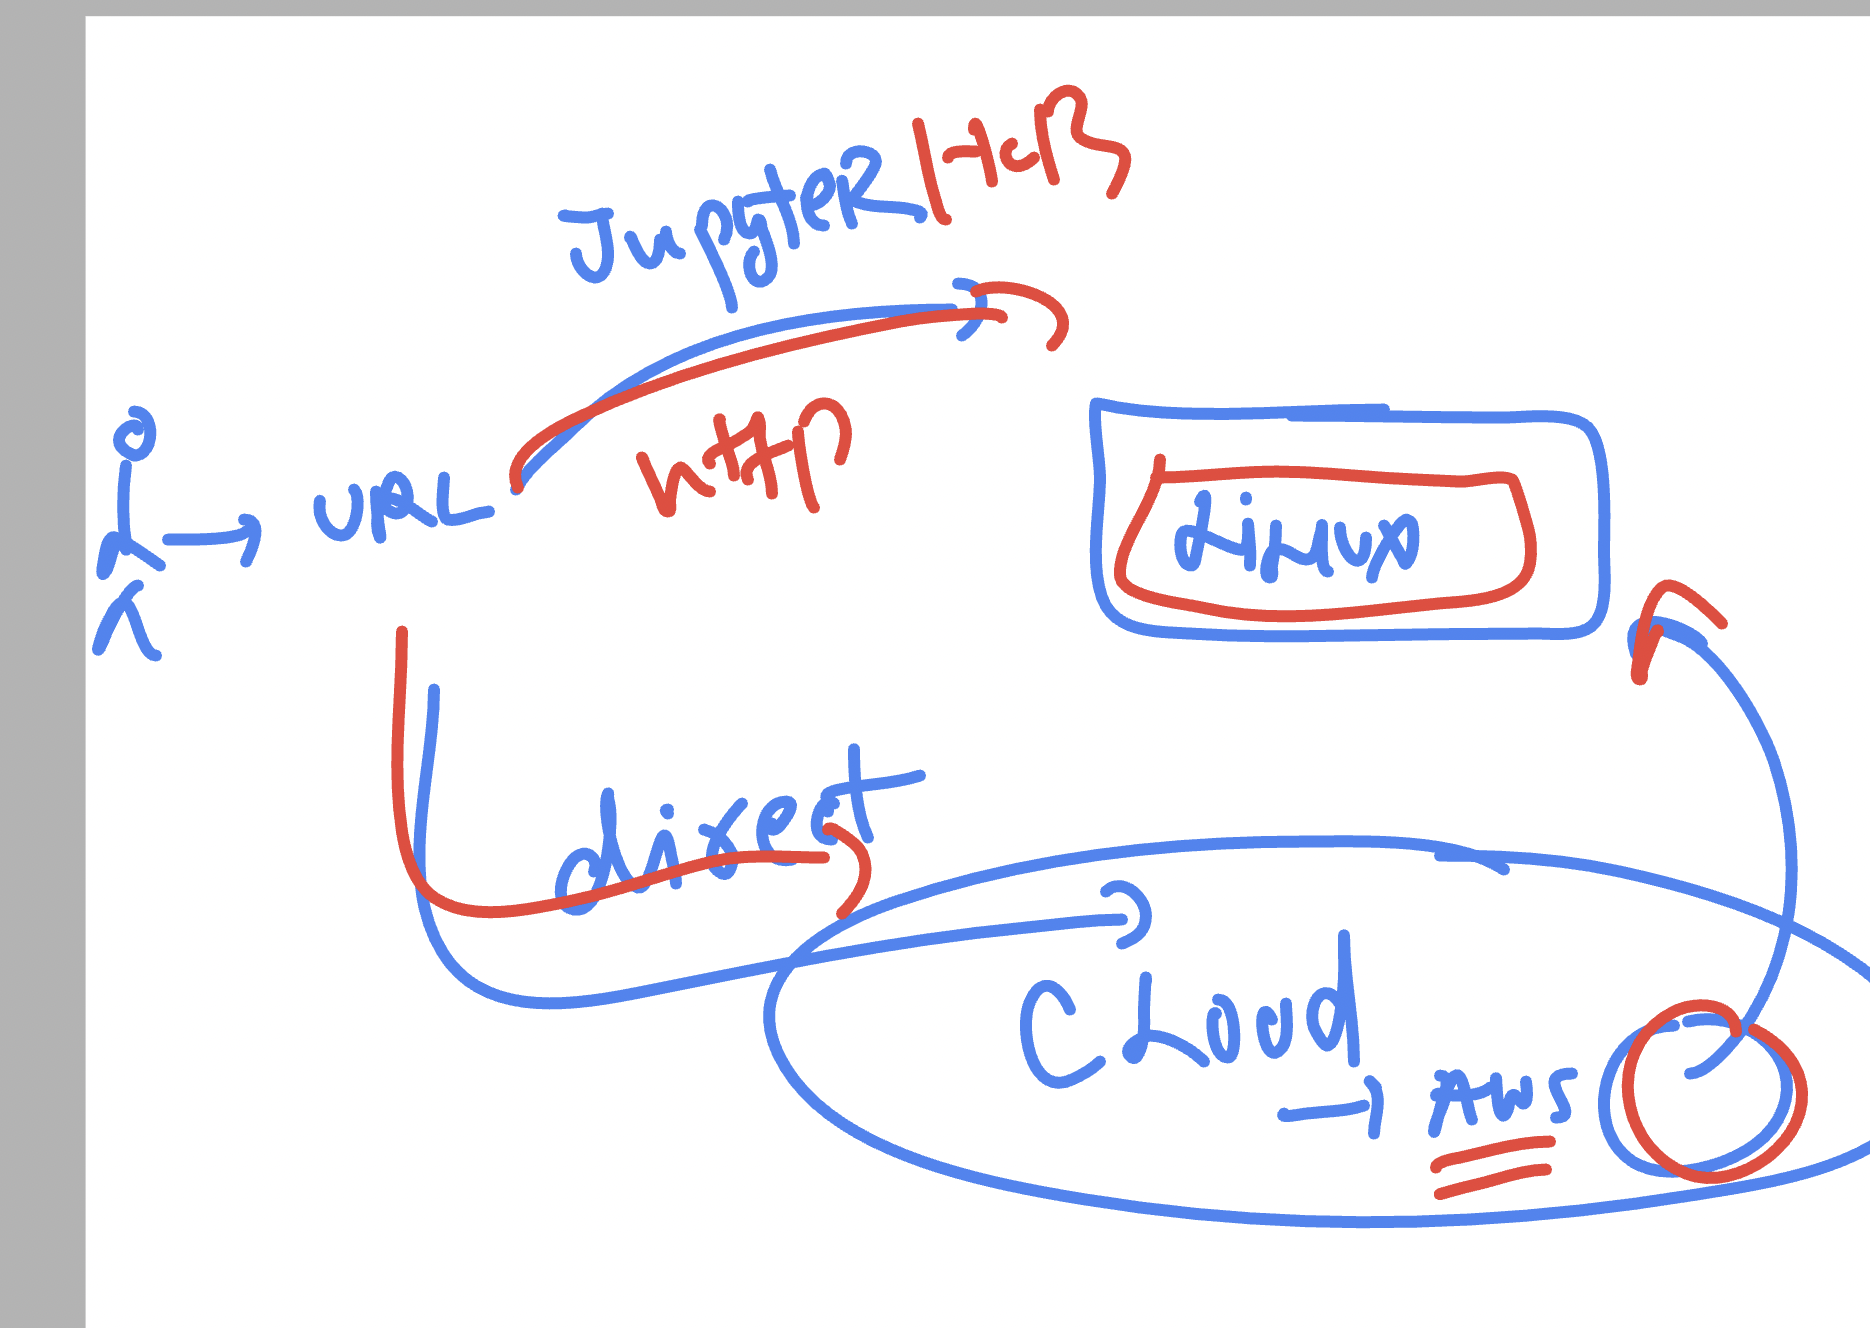 JupyteR
http
URL
Linux
direct
CLoud
→ AWS